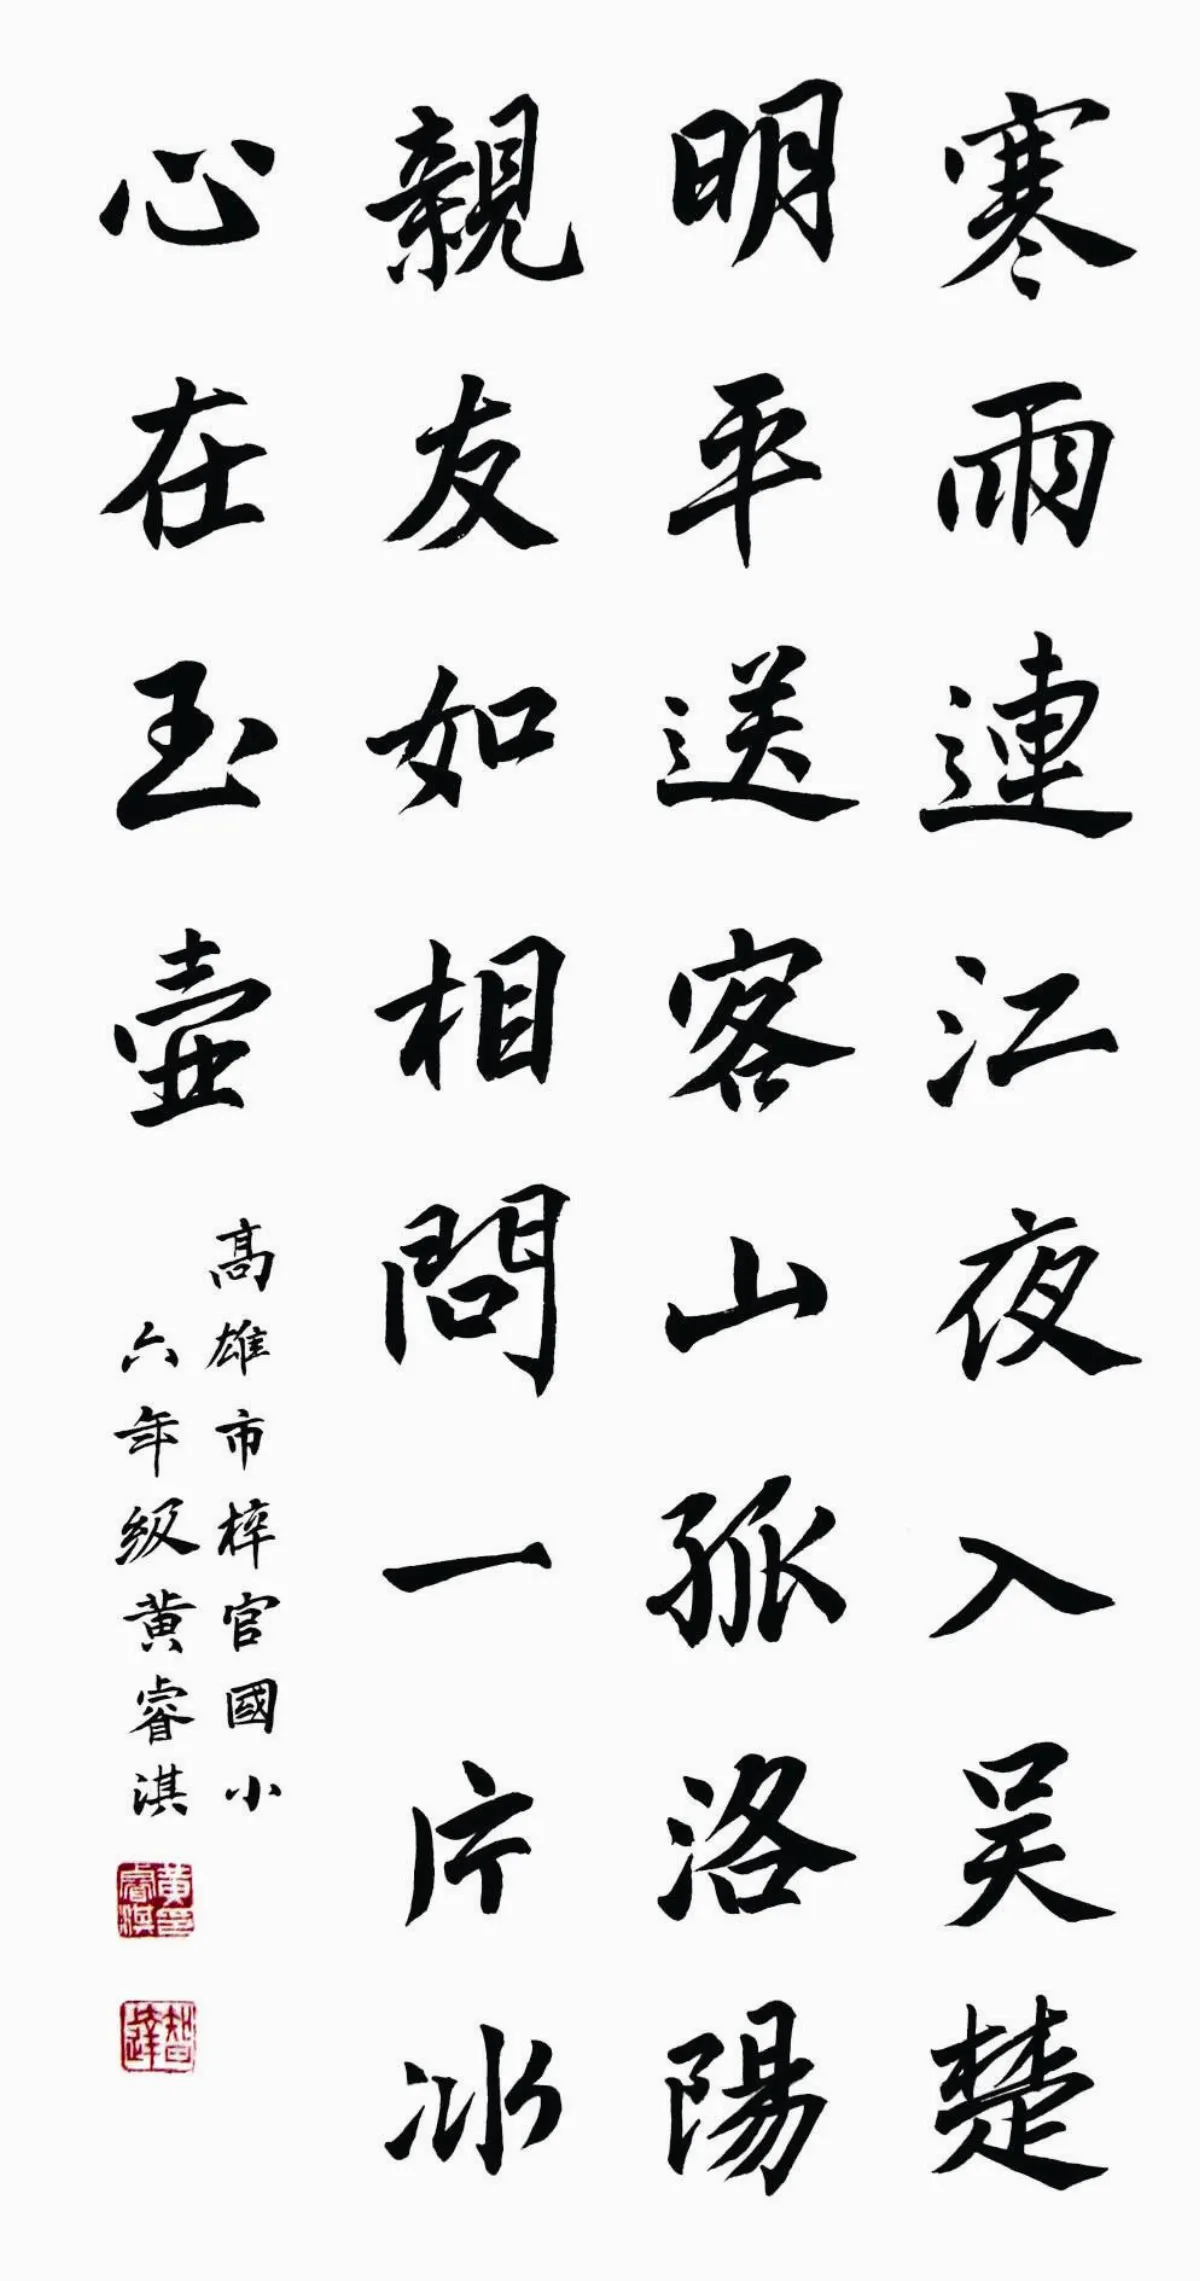 寒雨連江夜入吴楚
明平送客山孤洛陽
親友如相問一片冰
心在玉壺
高雄市梓官國小
六年級黄睿淇
黄睿淇印